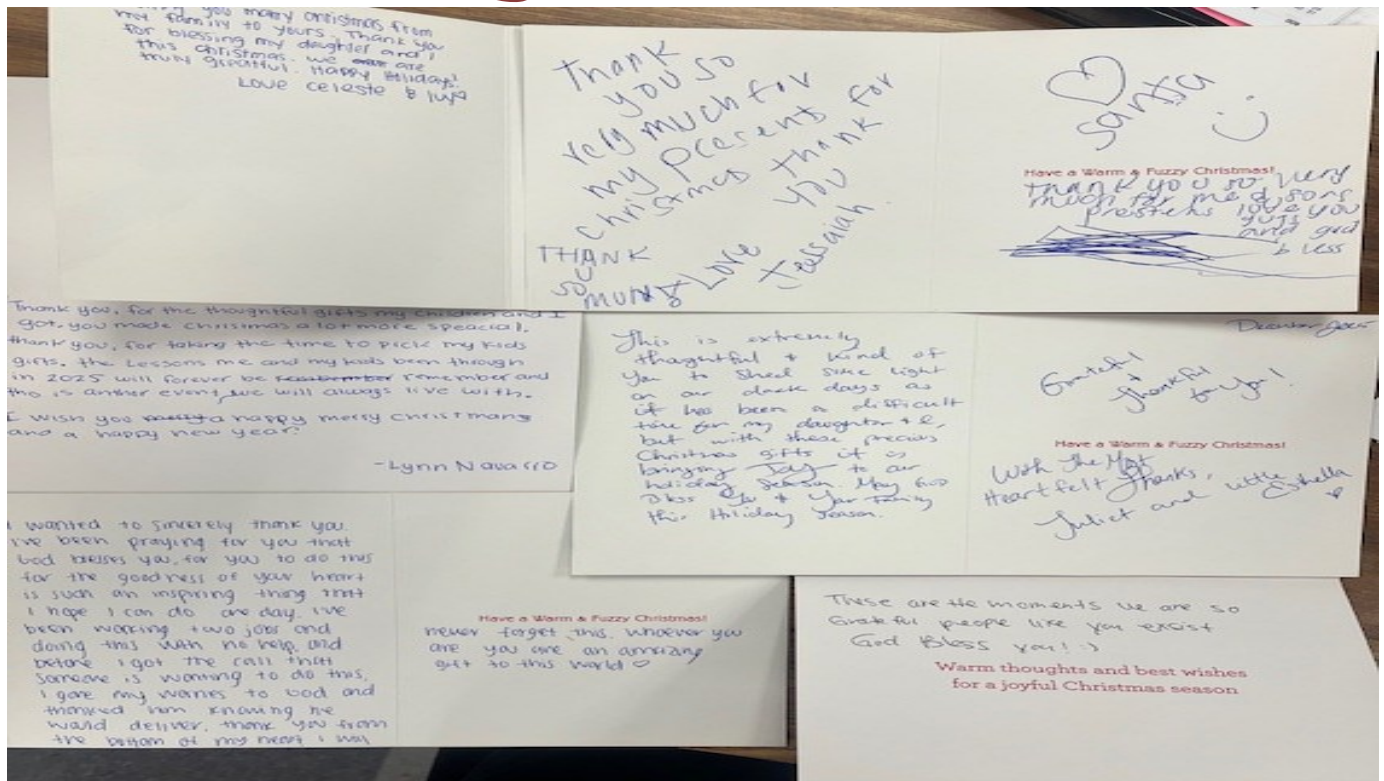 you merry christmas from
my family to yours. Thank you
for blessing my daughter and I
this christmas. we are
truly greatful. Happy Holidays!
Love celeste &
Thank
you so
very much for
my present for
christmas thank
you
THANK
SO
Love
Santa
Have a Warm & Fuzzy Christmas!
thank you so very
much for me & sons
love you
guys
and god
bless
Thank you, for the thoughtful gifts my children and I
got, you made christmas a lot more speacial.
thank you, for taking the time to pick my kids
gifts. the Lessons me and my kids been through
in 2025 will forever be remember and
this is another event, we will always live with.
I wish you a happy merry christmas
and a happy new year!
-Lynn Navarro
This is extremely
thoughtful & kind of
you to shed some light
on our dark days as
it has been a difficult
time for my daughter & I,
but with these precious
Christmas gifts it is
bringing Joy to our
holiday season. May God
Bless You & Your Family
this Holiday Season.
December 2025
Grateful
+
thankful
for you!
Have a Warm & Fuzzy Christmas!
With The Most
Heartfelt Thanks,
Juliet and little
Esthella
I wanted to sincerely thank you.
I've been praying for you that
God blesses you, for you to do this
for the goodness of your heart
is such an inspiring thing that
I hope I can do one day. I've
been working two jobs and
doing this with no help, and
before I got the call that
someone is wanting to do this,
I gave my worries to God and
thanked him knowing he
would deliver. thank you from
the bottom of my heart I will
Have a Warm & Fuzzy Christmas!
never forget this. whoever you
are you are an amazing
gift to this world
These are the moments we are so
Grateful people like you exsist
God Bless you! :)
Warm thoughts and best wishes
for a joyful Christmas season